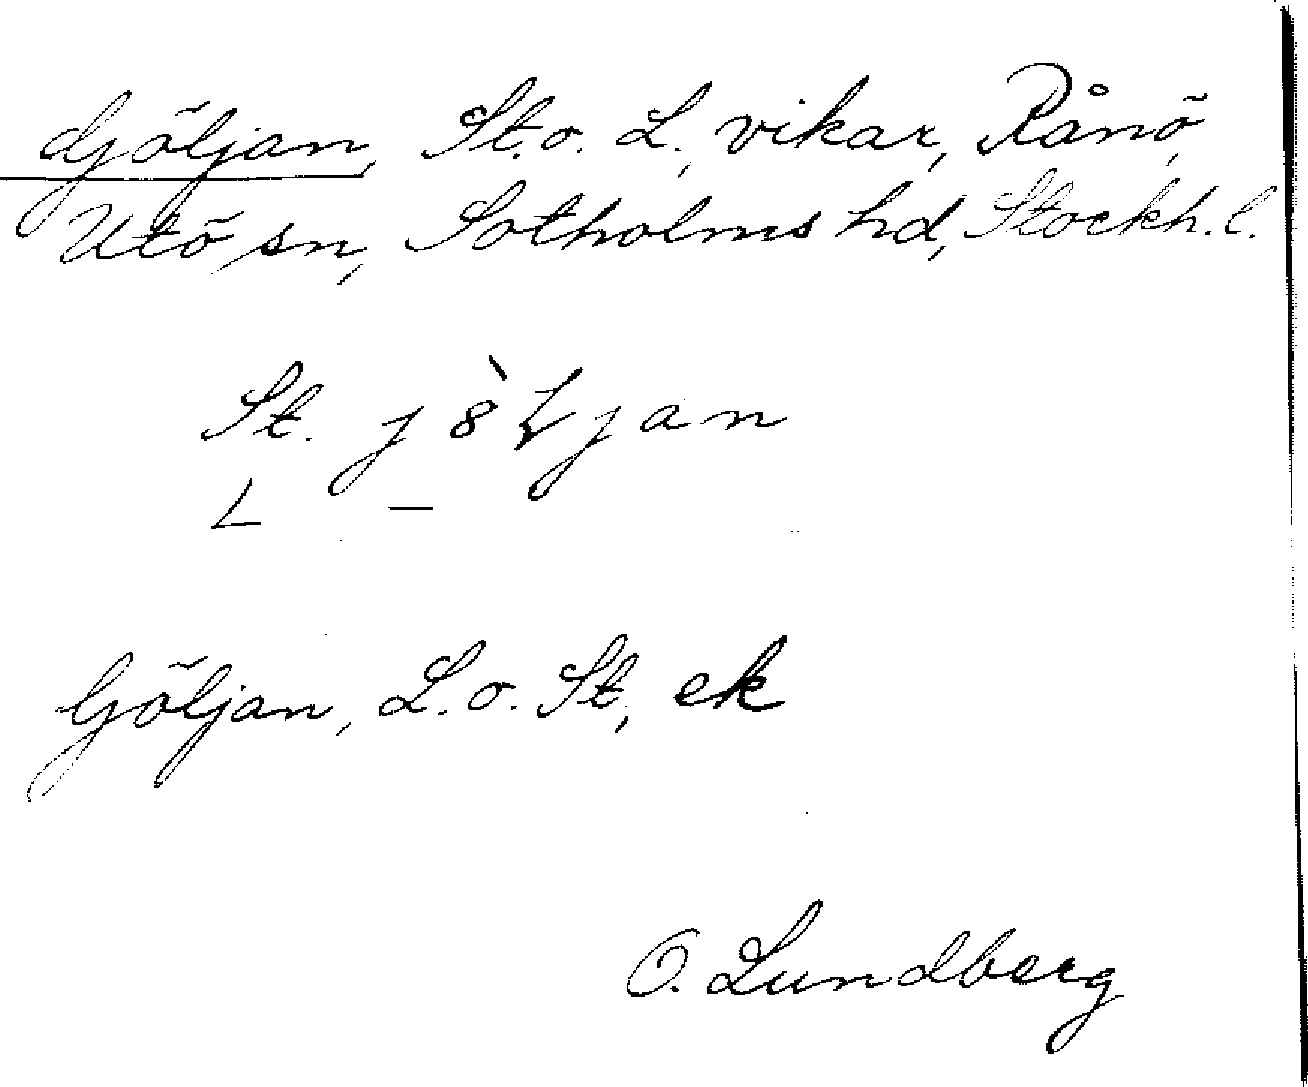 Göljan, St. o. L., vikar, Rånö,
Utö sn, Sotholms hd, Stockh. l.
St. j8̀ljan
L –
Göljan, L. o. St., ek
O. Lundberg